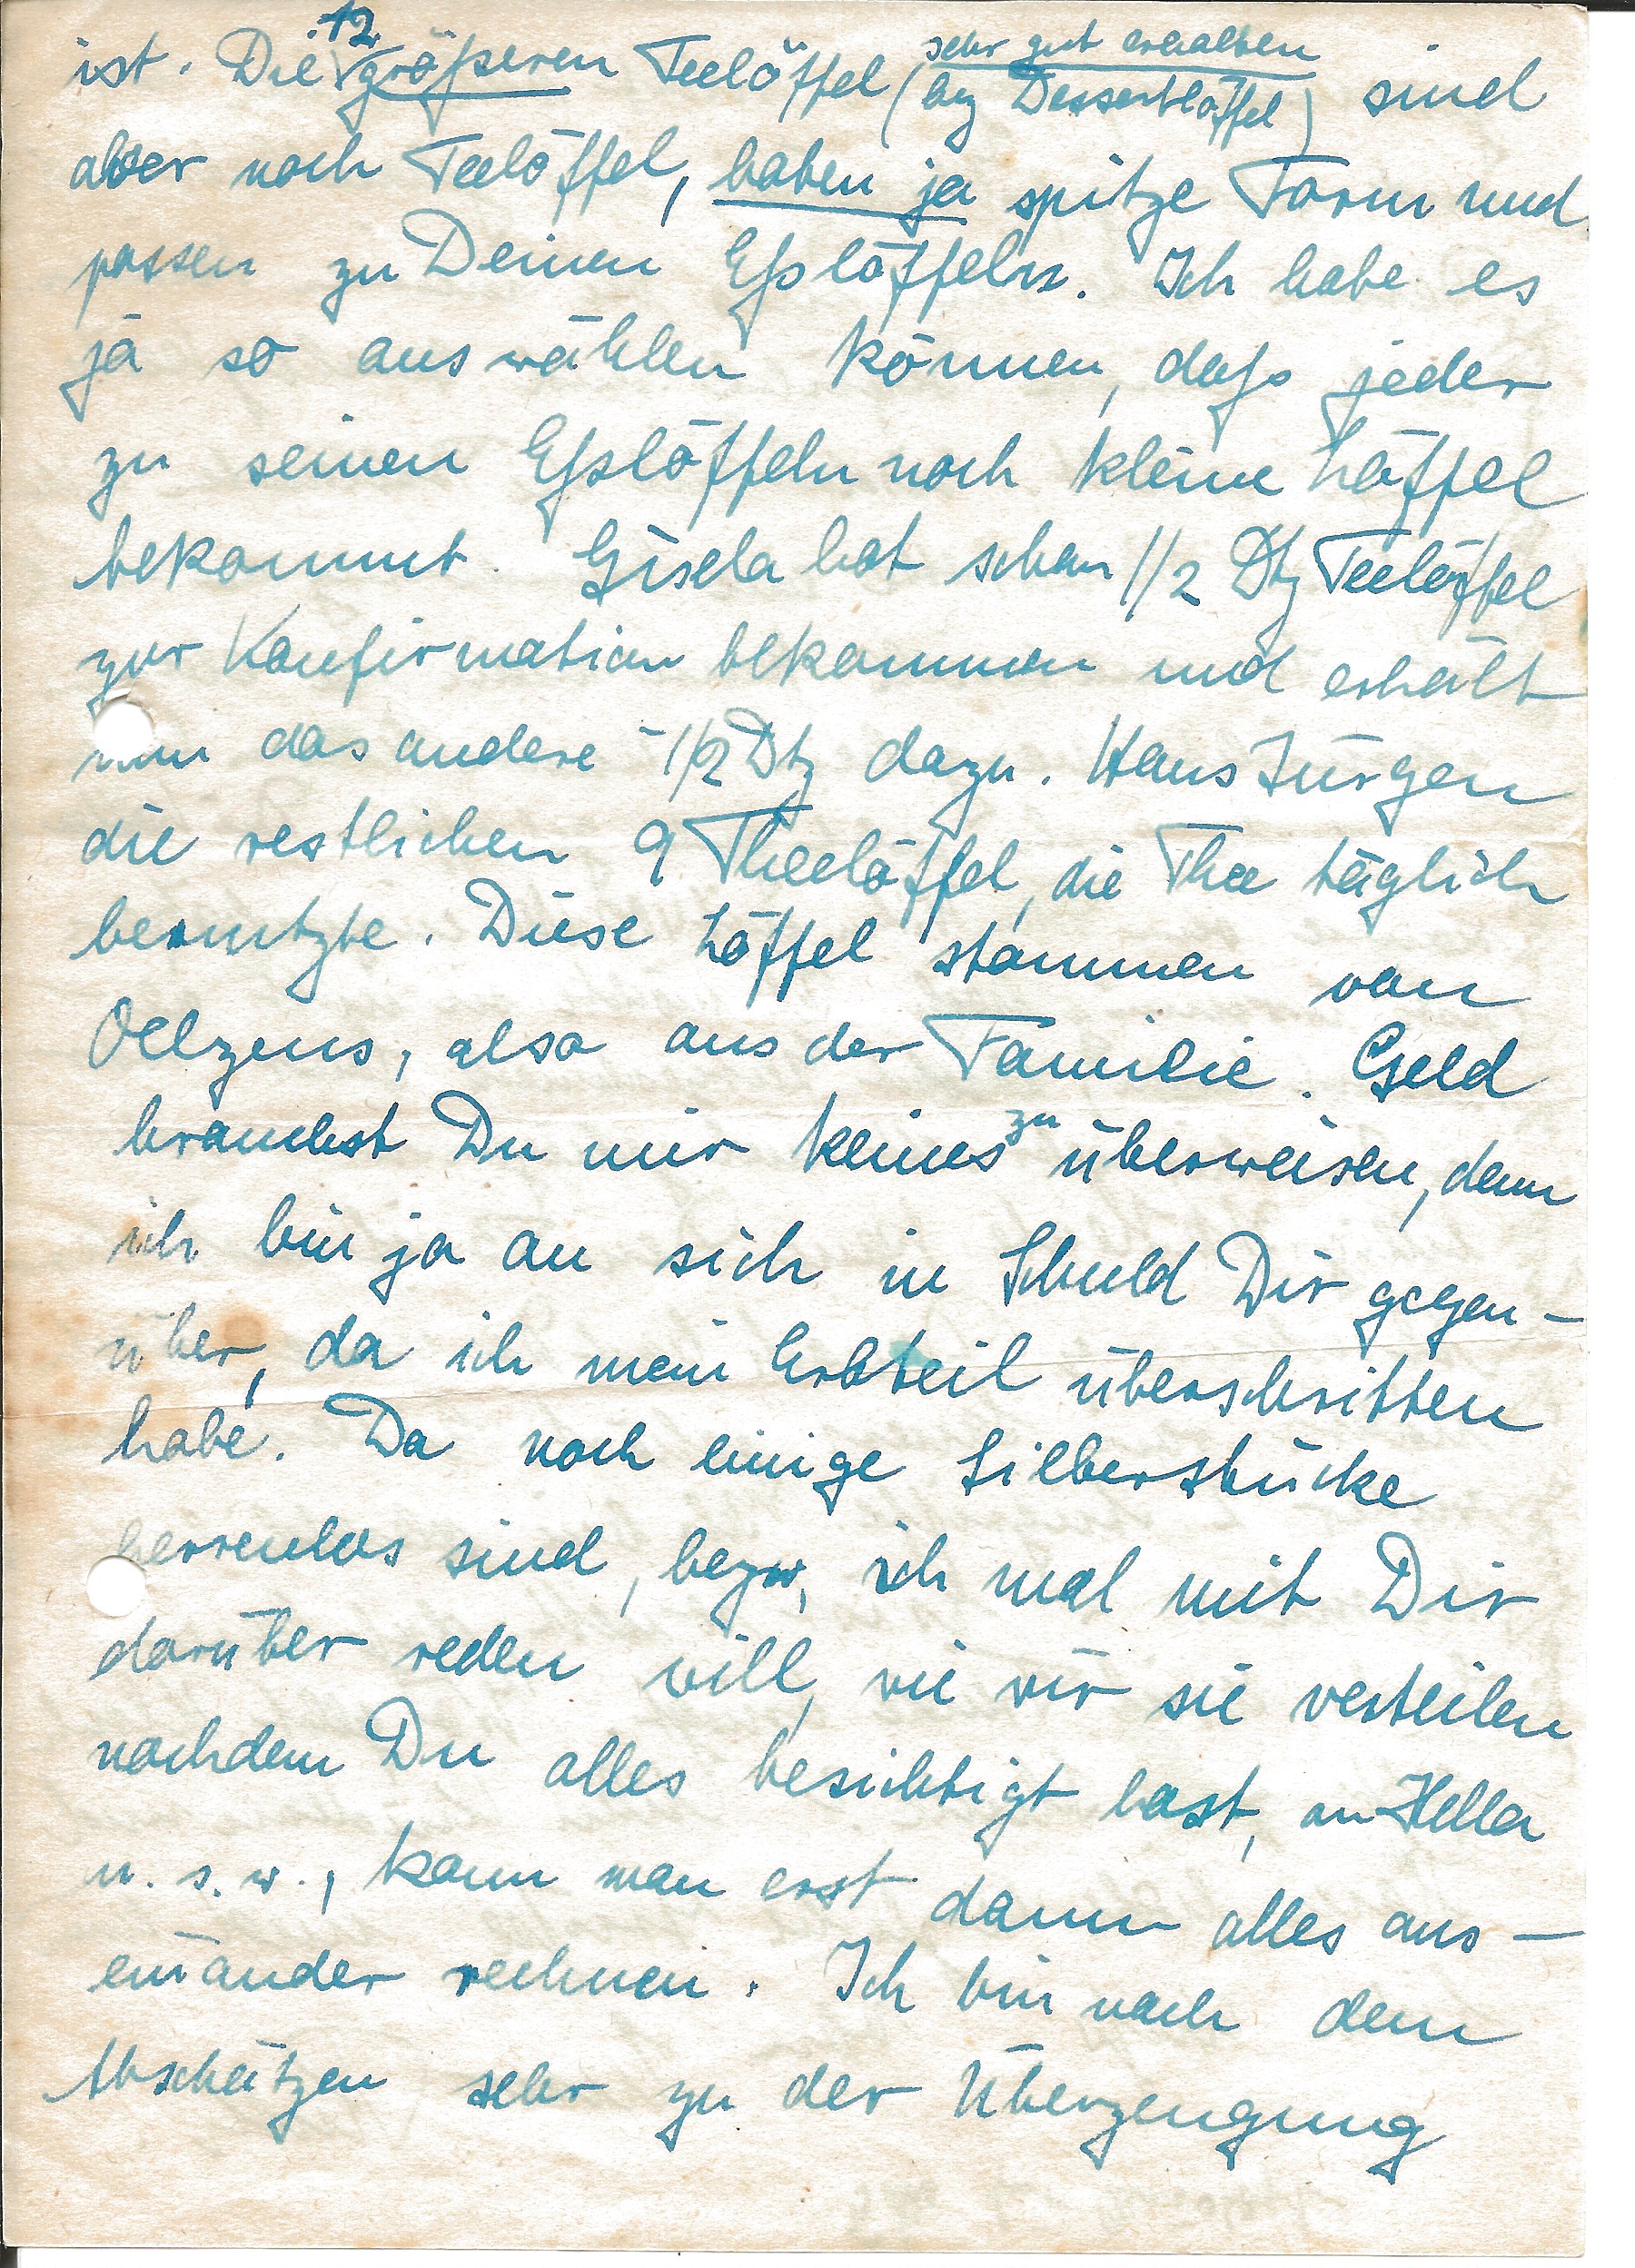 ist. Die 12 größeren Teelöffel (bez Dessertlöffel) sehr gut erhalten sind
aber noch Teelöffel, haben ja spitze Form und
passen zu Deinen Eßlöffeln. Ich habe es
ja so auswählen können, daß jeder
zu seinen Eßlöffeln noch kleine Löffel
bekommt. Gisela hat schon 1/2 Dtz Teelöffel
zur Konfirmation bekommen und erhält
nun das andere 1/2 Dtz dazu. Hans Jürgen
die restlichen 9 Theelöffel, die Thea täglich
benutzte. Diese Löffel stammen von
Oelzens, also aus der Familie. Geld
brauchst Du mir keines zu überweisen, denn
ich bin ja an sich in Schuld Dir gegen-
über, da ich mein Erbteil überschritten
habe. Da noch einige Silberstücke
herrenlos sind, bezw, ich mal mit Dir
darüber reden will, wie wir sie verteilen
nachdem Du alles besichtigt hast, an Hella
u. s. w., kann man erst dann alles aus-
einander rechnen. Ich bin nach dem
Abschätzen sehr zu der Überzeugung